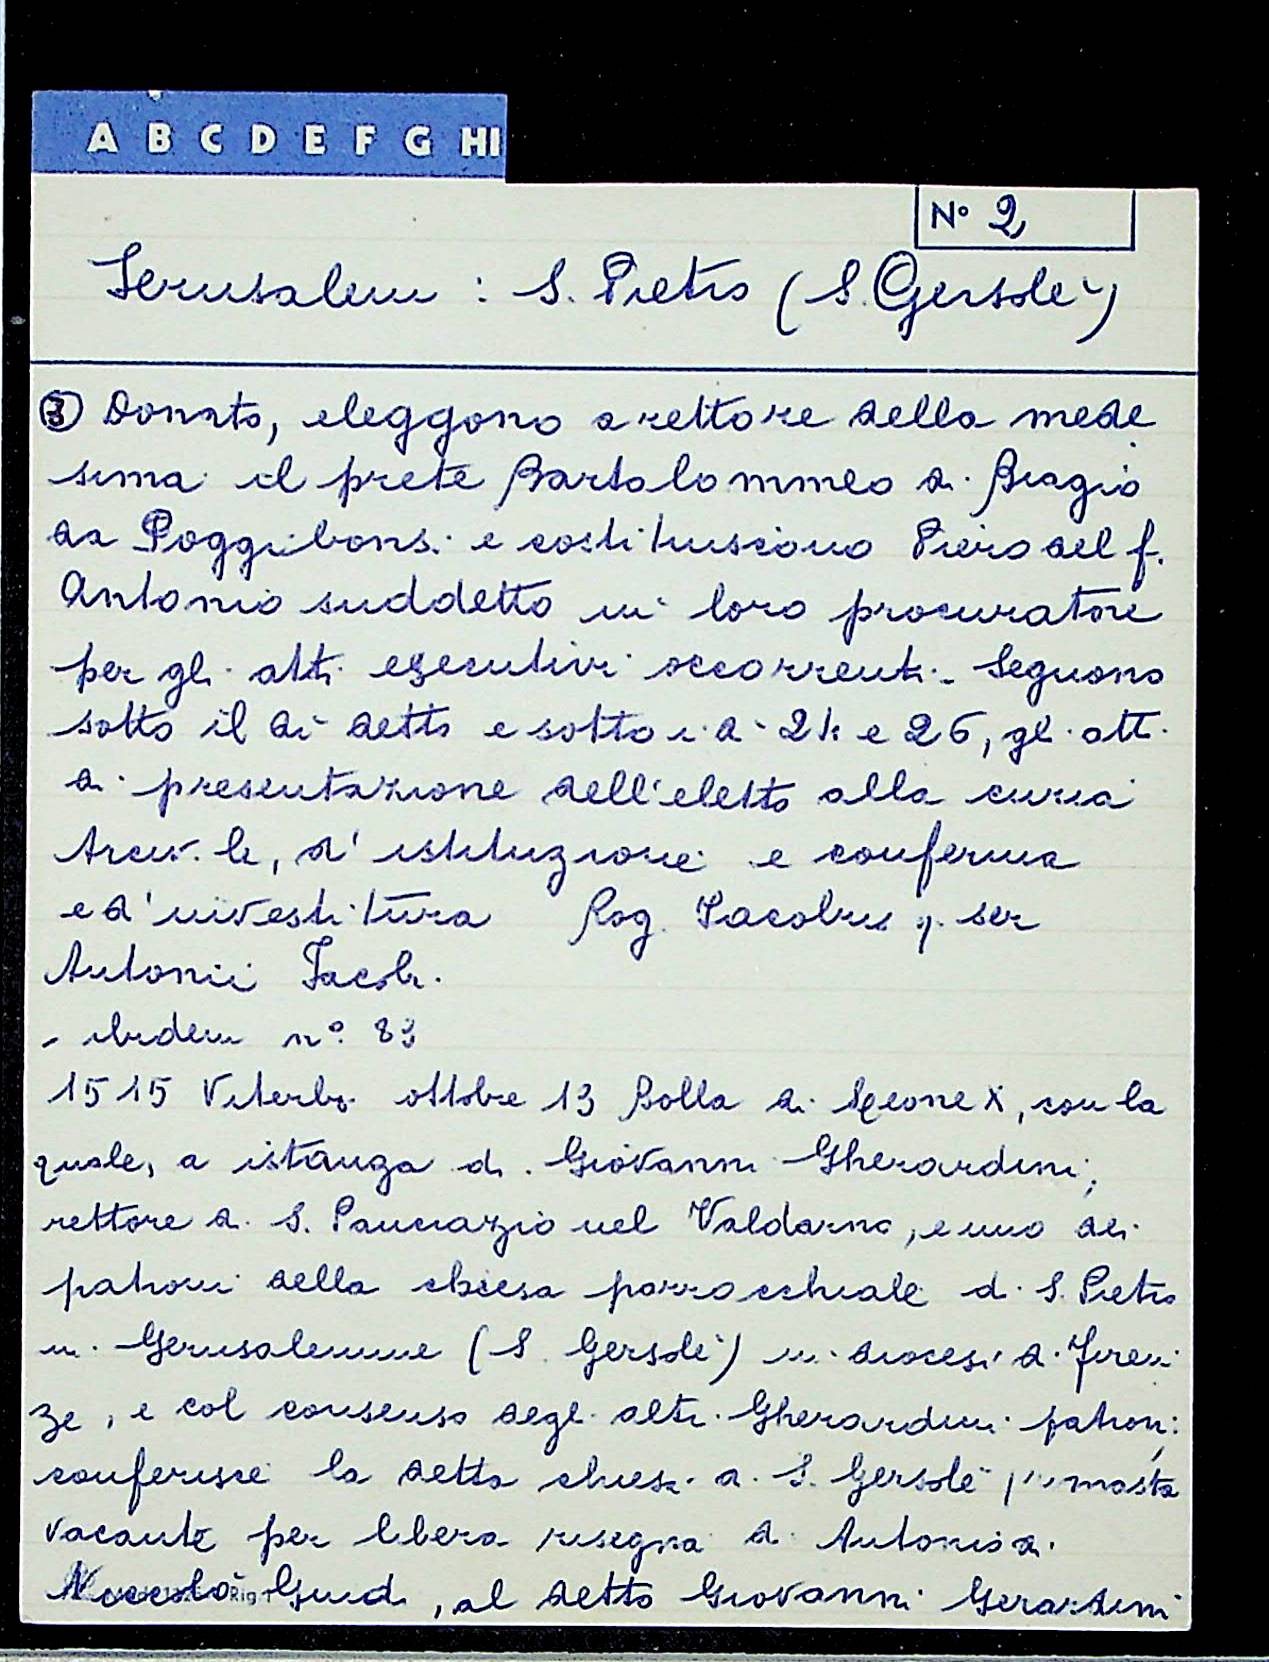 A B C D E F G HI
N° 2
Jerusalem : S. Pietro (S. Gersolè)
③ Donato, eleggono a rettore della mede
sima il prete Bartolommeo di Biagio
da Poggibonsi e costituiscono Piero del f.
Antonio suddetto in loro procuratore
per gli atti esecutivi occorrenti. Seguono
sotto il dì detto e sotto i dì 24 e 26, gli atti
di presentazione dell'eletto alla curia
Arciv.le, d'istituzione e conferma
e d'investitura Rog. Jacobus q. ser
Antonii Jacobi.
- ibidem n° 83
1515 Viterbo ottobre 13 Bolla di Leone X, con la
quale, a istanza di Giovanni Gherardini,
rettore di S. Pancrazio nel Valdarno, e uno dei
patroni della chiesa parrocchiale di S. Pietro
in Gerusalemme (S. Gersolè) in diocesi di Firen
ze, e col consenso degli altri Gherardini patroni
conferisce la detta chiesa di S. Gersolè rimasta
vacante per libera risegna di Antonio di
Niccolò Guidi, al detto Giovanni Gerardini